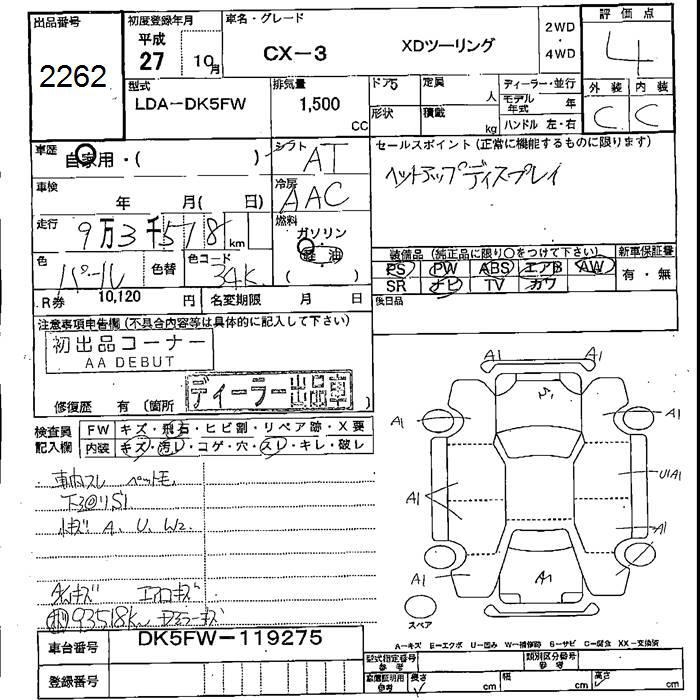 出品番号
2262
初度登録年月
平成
27 10月
車名・グレード
CX-3 XDツーリング
2WD
・
4WD
評価点
4
型式
LDA-DK5FW
排気量
1,500
CC
ドア5
形状
定員
人
積載
kg
ディーラー・並行
モデル年式 年
ハンドル 左・右
外装 内装
C C
車歴
自家用・( )
シフト
AT
セールスポイント(正常に機能するものに限ります)
ヘッドアップディスプレイ
車検
年 月( 日)
冷房
AAC
走行
9万3千518km
燃料
ガソリン
軽油
( )
色
パール
色替
色コード
34K
装備品(純正品に限り○をつけて下さい)
新車保証書
PS PW ABS エアB AW
SR ナビ TV カワ
有・無
R券 10,120 円
名変期限 月 日
後日品
注意事項申告欄(不具合内容等は具体的に記入して下さい)
初出品コーナー
AA DEBUT
ディーラー出品車
修復歴 有(箇所 )
検査員
記入欄
FW キズ・飛石・ヒビ割・リペア跡・X要
内装 キズ・汚レ・コゲ・穴・スレ・キレ・破レ
車内スレ ペット毛
下回りS1
小キズ A、U、W2
ガラスキズ エアロキズ
93518km
A1 A1
A1 A1
A1 U1A1
A1
A1 A1
A1
スペア
A-キズ E-エクボ U-凹み W-補修跡 S-サビ C-腐食 XX-交換済
車台番号
DK5FW-119275
登録番号
型式指定番号
参考
類別区分番号
参考
車庫証明用
参考
長さ cm
幅 cm
高さ cm